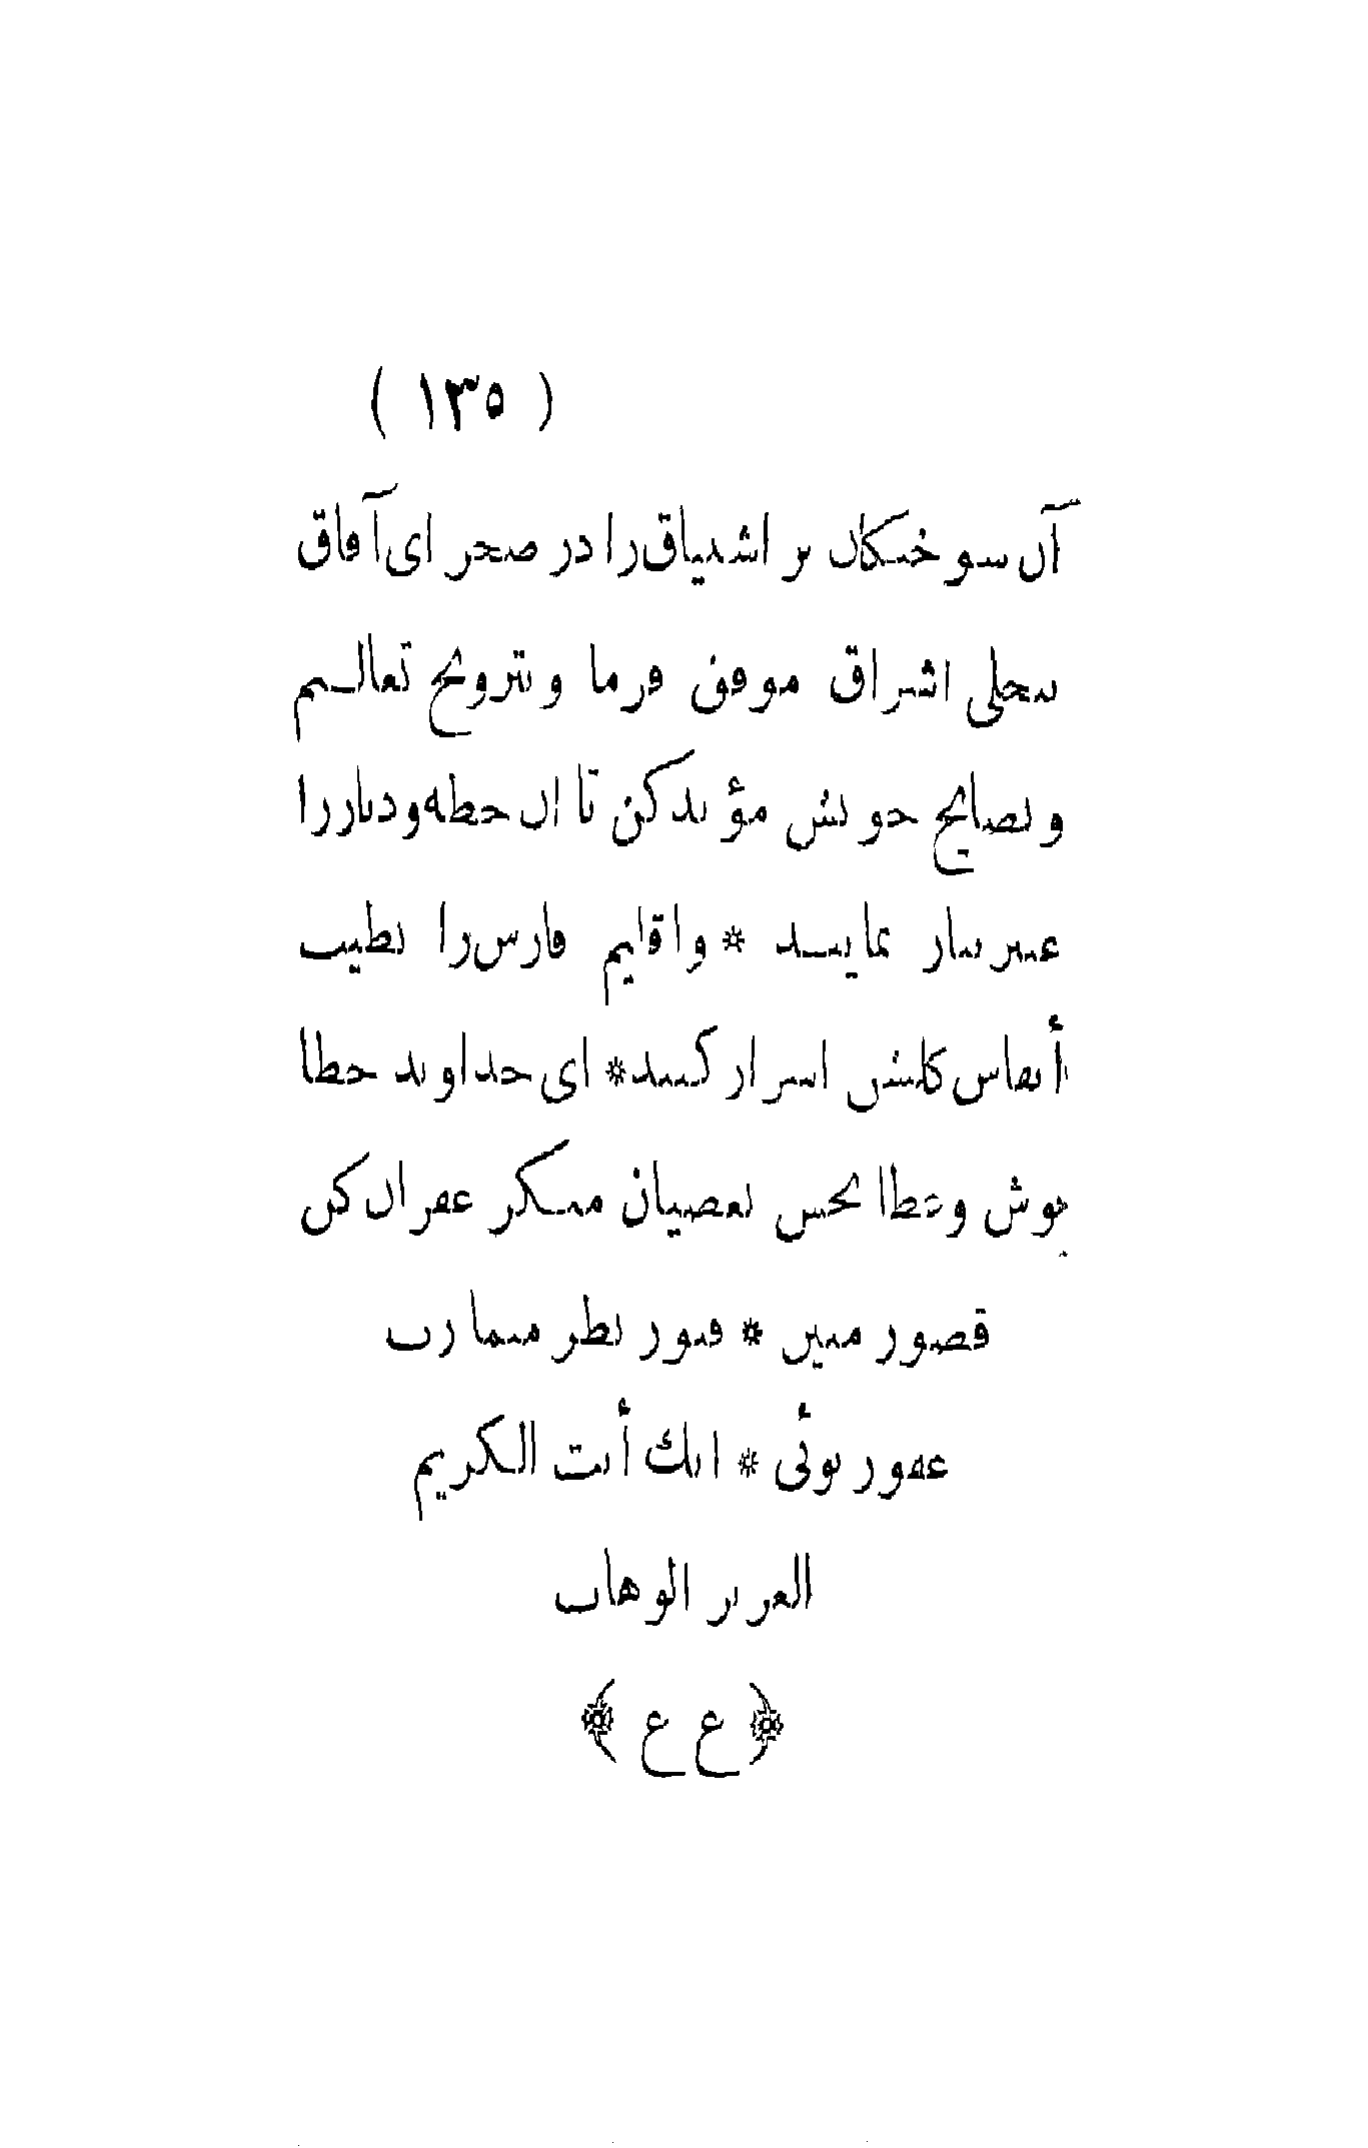 ( ١٣٥ )
آن سوختگان پر اشتیاق را در صحرای آفاق
بتجلی اشراق موفق فرما و بترویج تعالیم
و نصایح خویش مؤید کن تا آن خطه و دیار را
عنبر بار نمایند * و اقلیم فارس را بطیب
أنفاس گلشن اسرار کنند * ای خداوند خطا
پوش و خطا بخش بعصیان منگر غفران کن
قصور مبین * فتور نظر منما رب
غفور توئی * انك أنت الكريم
العزيز الوهاب
﴿ ع ع ﴾